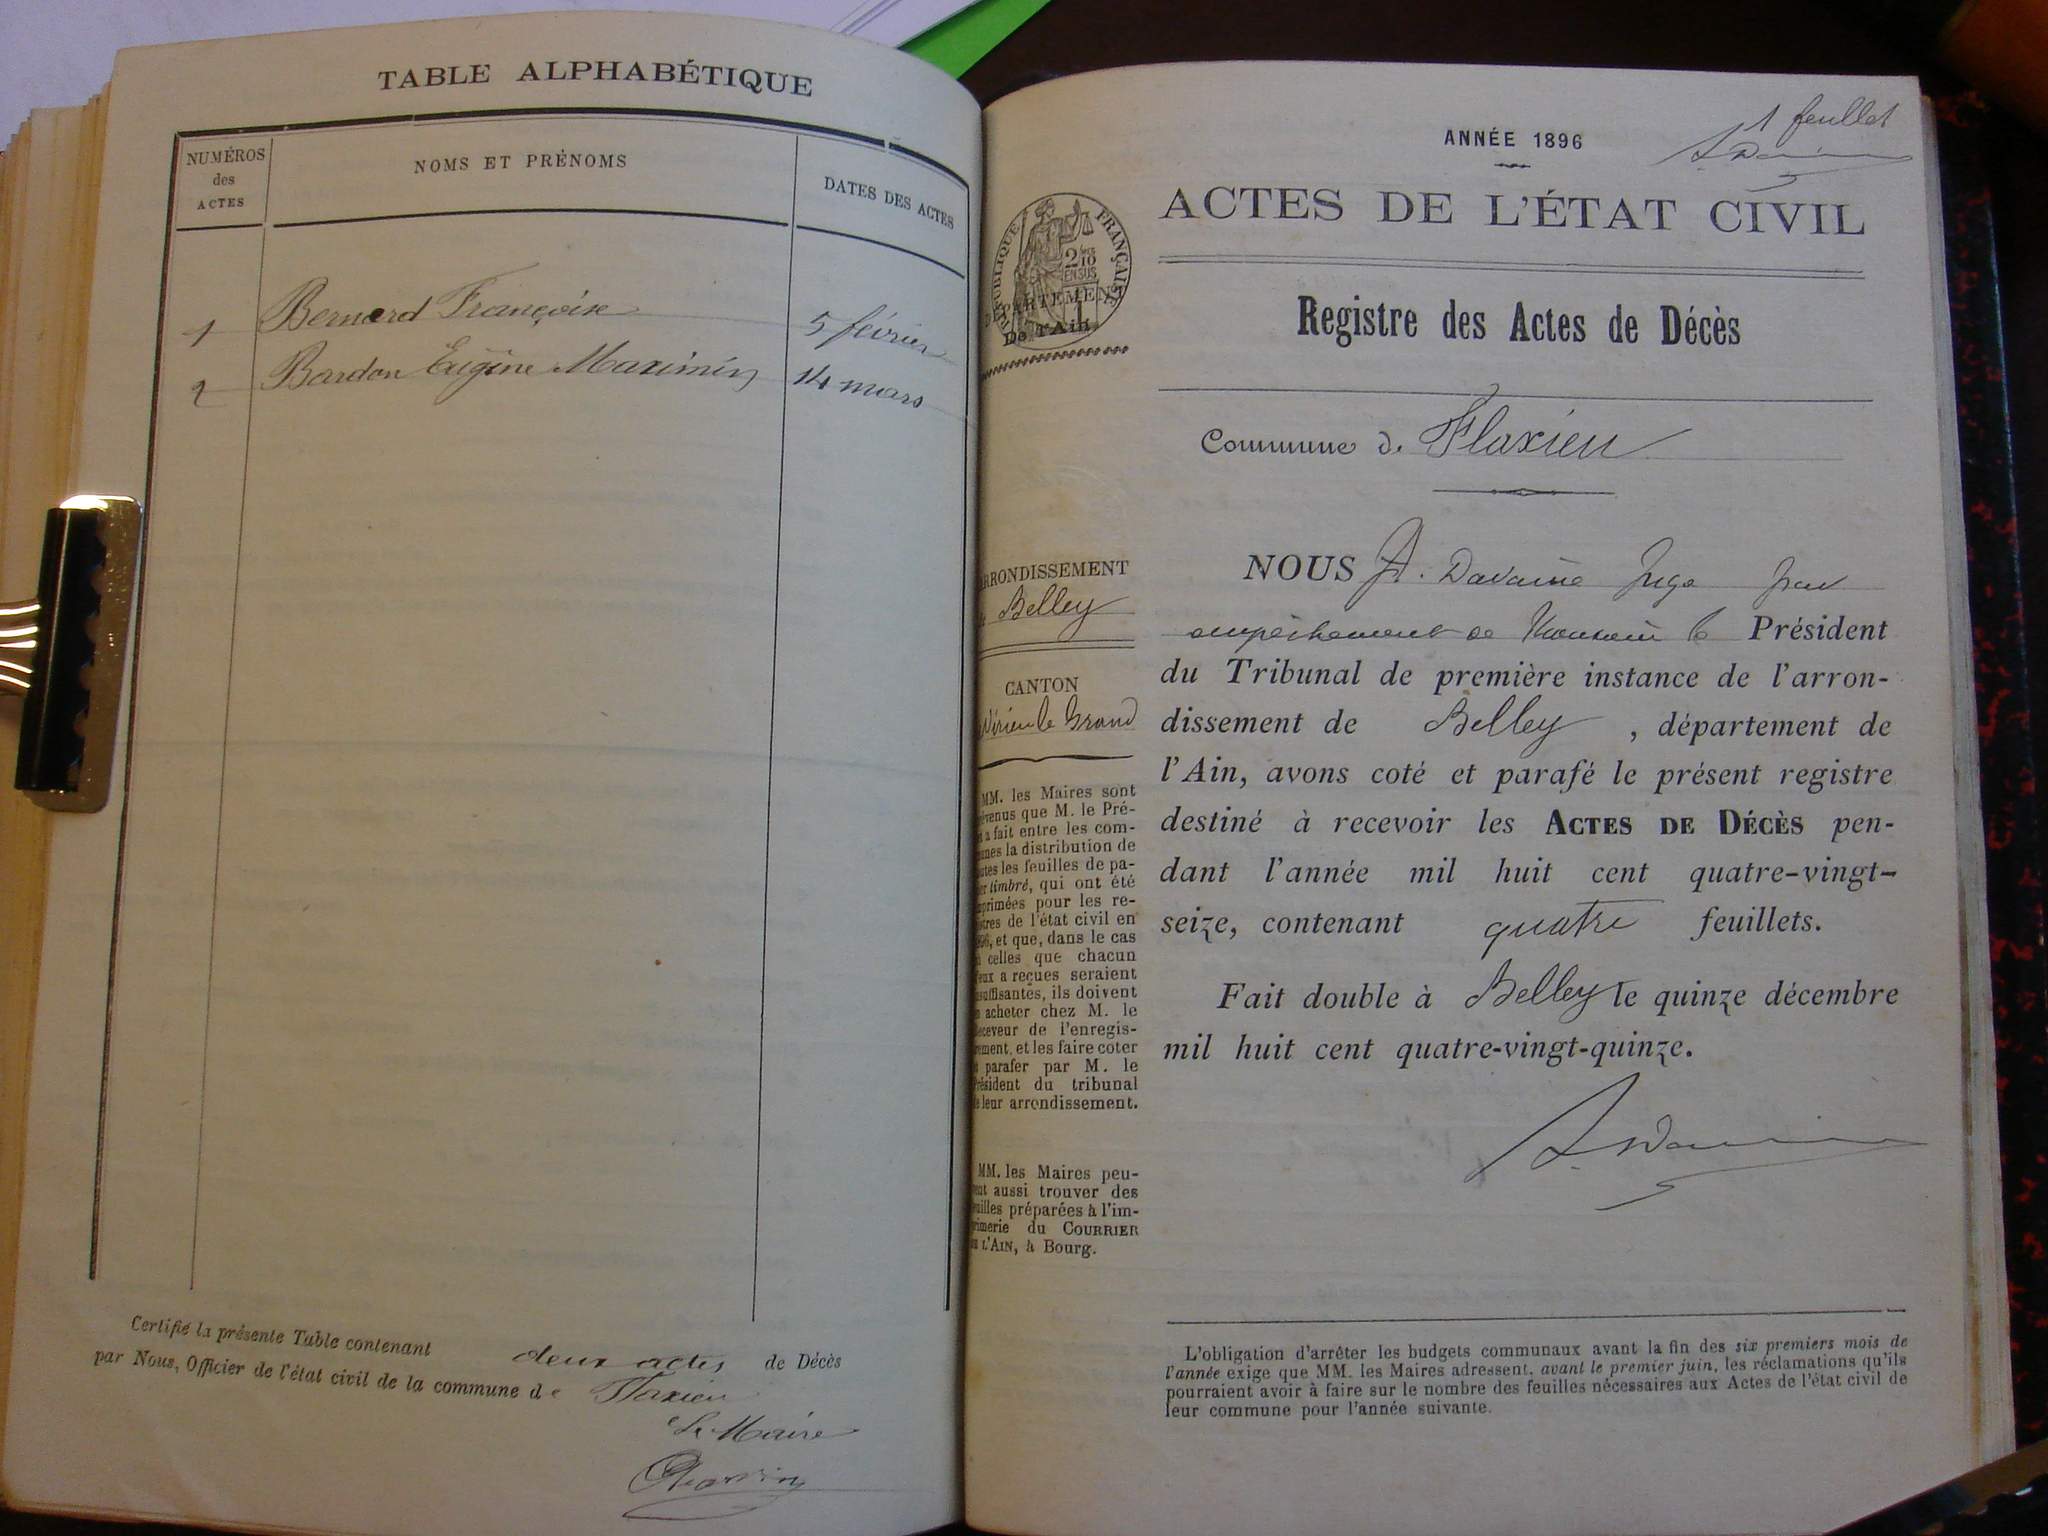 TABLE ALPHABÉTIQUE
NUMÉROS
des
ACTES
NOMS ET PRÉNOMS
DATES DES ACTES
1 Bernard Françoise 5 février
2 Bardon Eugène Maximin 14 mars
Certifié la présente Table contenant deux actes de Décès
par Nous, Officier de l'état civil de la commune de Flaxieu
Le Maire
1 feuillet
ANNÉE 1896
ACTES DE L'ÉTAT CIVIL
RÉPUBLIQUE FRANÇAISE
2/10
EN SUS
DÉPARTEMENT
De l'Ain
Registre des Actes de Décès
Commune de Flaxieu
ARRONDISSEMENT
de Belley
CANTON
Virieu le Grand
MM. les Maires sont
prévenus que M. le Pré-
fet a fait entre les com-
munes la distribution de
toutes les feuilles de pa-
pier timbré, qui ont été
imprimées pour les re-
gistres de l'état civil en
1896, et que, dans le cas
où celles que chacun
d'eux a reçues seraient
insuffisantes, ils doivent
en acheter chez M. le
Receveur de l'enregis-
trement, et les faire coter
et parafer par M. le
Président du tribunal
de leur arrondissement.
MM. les Maires peu-
vent aussi trouver des
feuilles préparées à l'im-
primerie du COURRIER
DE L'AIN, à Bourg.
NOUS A. Davaine Juge pour
empêchement de Monsieur le Président
du Tribunal de première instance de l'arron-
dissement de Belley, département de
l'Ain, avons coté et parafé le présent registre
destiné à recevoir les ACTES DE DÉCÈS pen-
dant l'année mil huit cent quatre-vingt-
seize, contenant quatre feuillets.
Fait double à Belley le quinze décembre
mil huit cent quatre-vingt-quinze.
L'obligation d'arrêter les budgets communaux avant la fin des six premiers mois de
l'année exige que MM. les Maires adressent, avant le premier juin, les réclamations qu'ils
pourraient avoir à faire sur le nombre des feuilles nécessaires aux Actes de l'état civil de
leur commune pour l'année suivante.